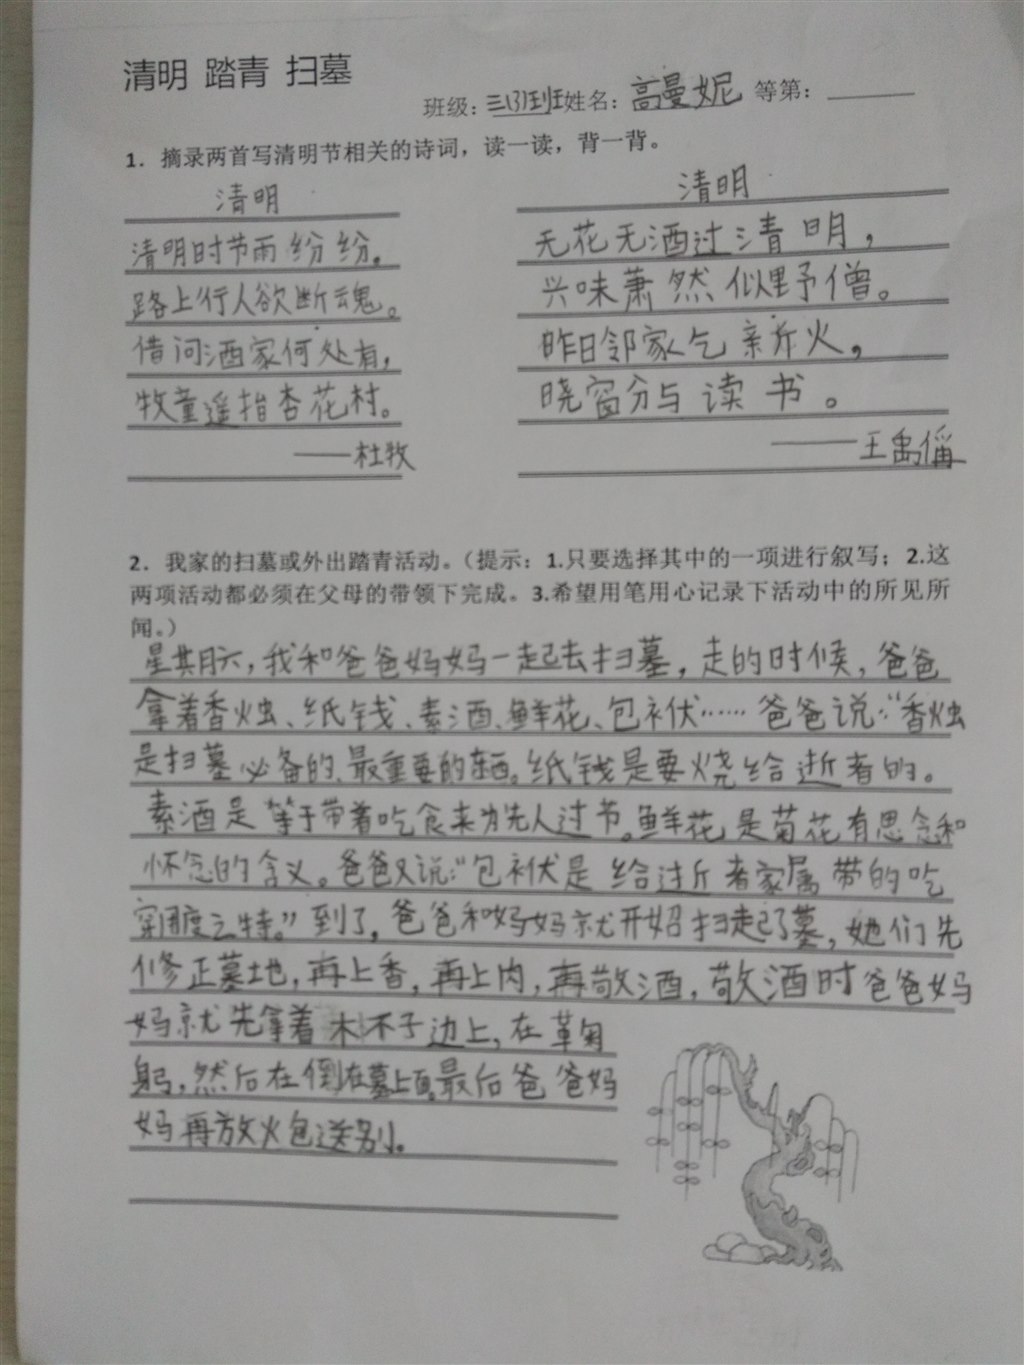 清明 踏青 扫墓
班级：三(3)班姓名：高曼妮 等第：
1．摘录两首写清明节相关的诗词，读一读，背一背。
清明
清明时节雨纷纷。
路上行人欲断魂。
借问酒家何处有，
牧童遥指杏花村。
——杜牧
清明
无花无酒过清明，
兴味萧然似野僧。
昨日邻家乞新火，
晓窗分与读书。
——王禹偁
2．我家的扫墓或外出踏青活动。（提示：1.只要选择其中的一项进行叙写；2.这
两项活动都必须在父母的带领下完成。3.希望用笔用心记录下活动中的所见所
闻。）
星期六，我和爸爸妈妈一起去扫墓，走的时候，爸爸
拿着香烛、纸钱、素酒、鲜花、包袱……爸爸说：“香烛
是扫墓必备的、最重要的东西。纸钱是要烧给逝者的。
素酒是等于带着吃食来为先人过节。鲜花是菊花有思念和
怀念的含义。爸爸又说：“包袱是给过斤者家属带的吃
穿用度之特。”到了，爸爸和妈妈就开始扫走起了墓，她们先
修正墓地，再上香，再上肉，再敬酒，敬酒时爸爸妈
妈就先拿着杯子边上，在革匊
躬，然后在倒在墓上面。最后爸爸妈
妈再放火包送别。